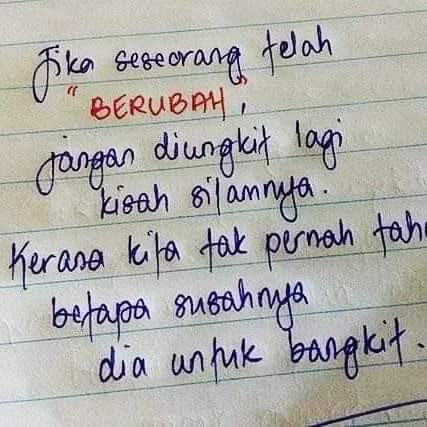 Jika seseorang telah
"BERUBAH",
jangan diungkit lagi
kisah silamnya.
Kerana kita tak pernah tahu
betapa susahnya
dia untuk bangkit.